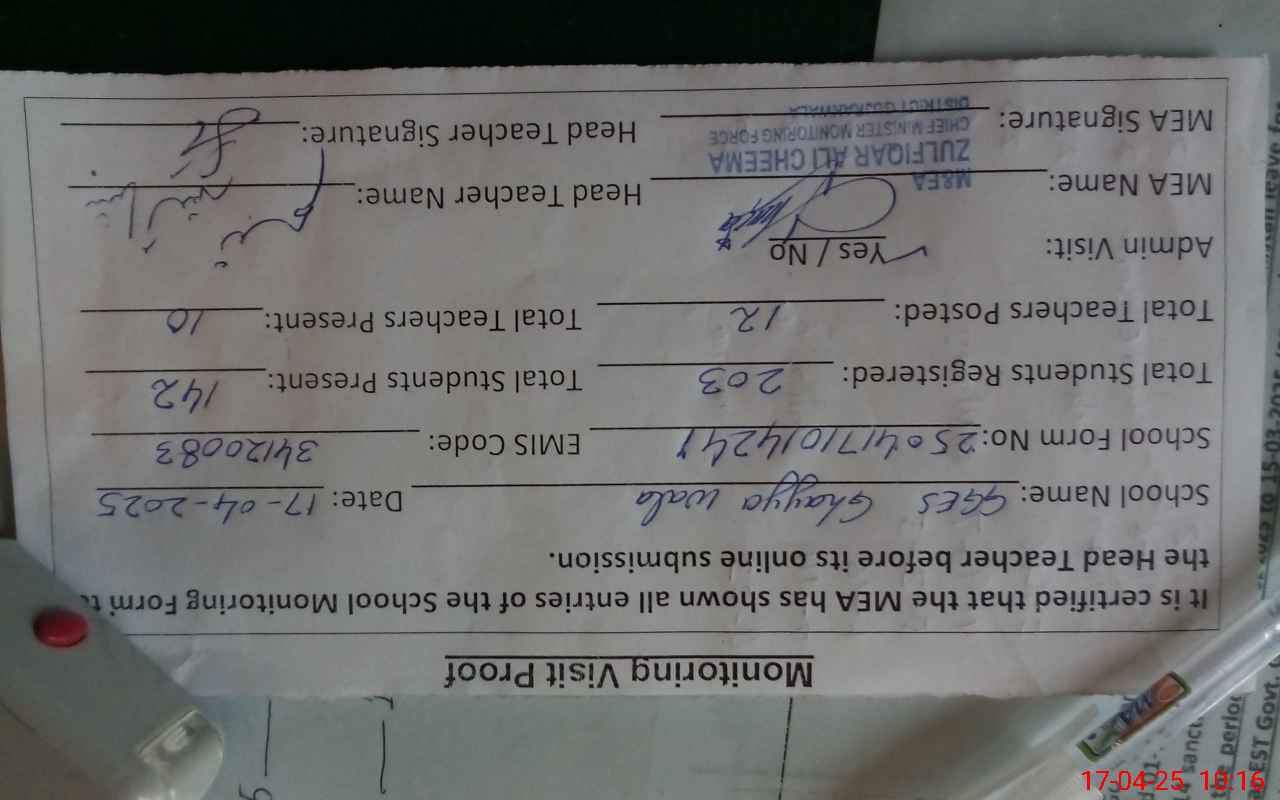 Monitoring Visit Proof
It is certified that the MEA has shown all entries of the School Monitoring Form to
the Head Teacher before its online submission.
School Name: GGES Ghayya wala Date: 17-04-2025
School Form No: 2504171014241 EMIS Code: 34120083
Total Students Registered: 203 Total Students Present: 142
Total Teachers Posted: 12 Total Teachers Present: 10
Admin Visit: Yes / No
MEA Name: Head Teacher Name:
M&EA
ZULFIQAR ALI CHEEMA
CHIEF MINISTER MONITORING FORCE
DISTRICT GUJRANWALA
MEA Signature: Head Teacher Signature:
2025 to 15-03-2025
the period
EST Govt.
17-04-25 10:16